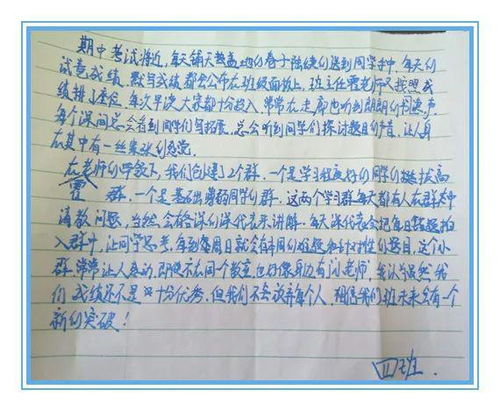 期中考试将近，每天铺天盖地的卷子陆续的送到同学手中，每天的
试卷成绩 默写成绩都会公布在班级面板上，班主任霍老师又按照成
绩排了座位，每次早读大家都十分投入，常常在走廊也听到朗朗的书声，
每个课间总会看到同学们写板，总会听到同学们探讨题目的声音，让人身
在其中有一丝紧张的感觉
在老师的号致下，我们创建了2个群，一个是学习程度好的同学的拔高
霍 群，一个是基础薄弱同学的群，这两个学习群每天都有人在群友中
请教问题，当然会有各课的课代表来讲解，每天课代表会把每日错题投
入群中，让同学思考，每到每周日就会有本周的难题和针对性的题目，这个小
群常常让人感动，即使不在同一个教室也好像身边有“小老师”，我认为虽然我
们成绩还不是十分优秀，但我们不会放弃每个人，相信我们班未来会有一个
新的突破！
四班.